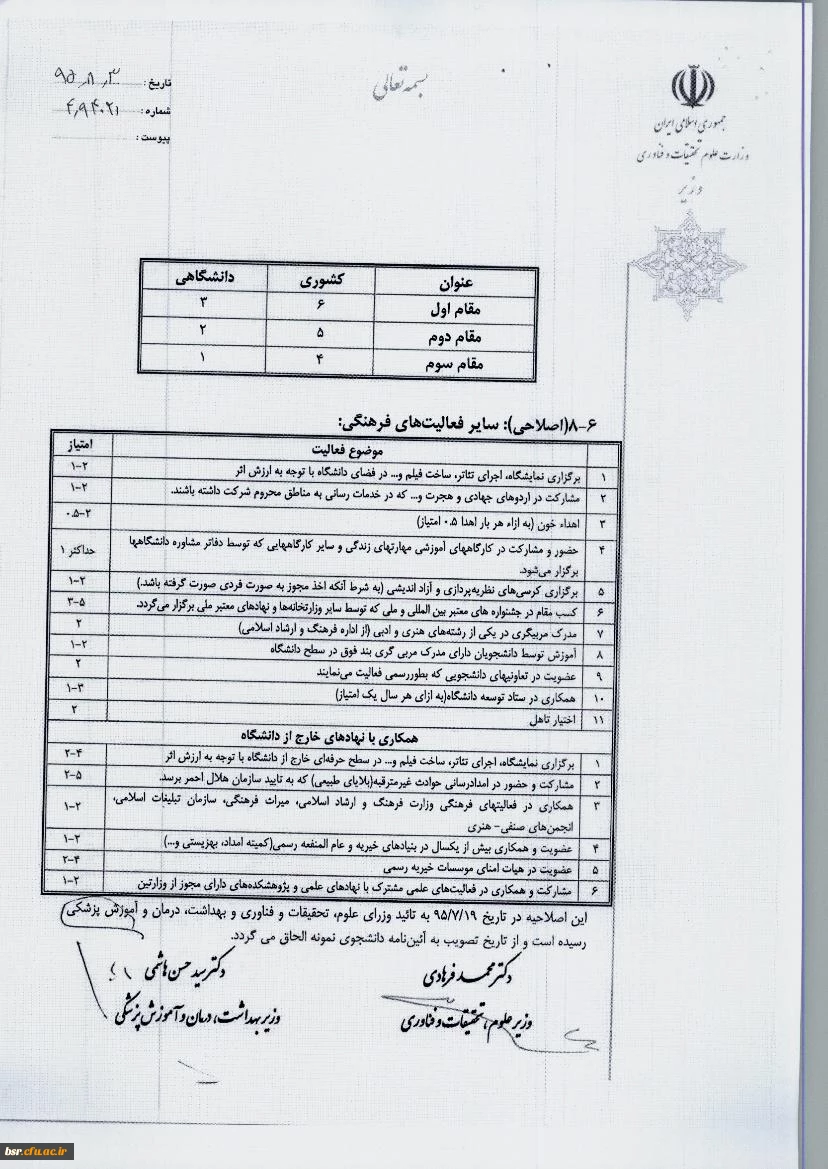 بسمه تعالی
جمهوری اسلامی ایران
وزارت علوم تحقیقات و فناوری
وزیر
تاریخ: ۹۵،۸،۳
شماره:
پیوست:
عنوان کشوری دانشگاهی
مقام اول ۶ ۳
مقام دوم ۵ ۲
مقام سوم ۴ ۱
۸-۶(اصلاحی): سایر فعالیت‌های فرهنگی:
موضوع فعالیت امتیاز
۱ برگزاری نمایشگاه، اجرای تئاتر، ساخت فیلم و... در فضای دانشگاه با توجه به ارزش اثر ۱-۲
۲ مشارکت در اردوهای جهادی و هجرت و... که در خدمات رسانی به مناطق محروم شرکت داشته باشند. ۱-۲
۳ اهداء خون (به ازاء هر بار اهدا ۰.۵ امتیاز) ۰.۵-۲
۴ حضور و مشارکت در کارگاههای آموزشی مهارتهای زندگی و سایر کارگاههایی که توسط دفاتر مشاوره دانشگاهها حداکثر ۱
برگزار می‌شود.
۵ برگزاری کرسی‌های نظریه‌پردازی و آزاد اندیشی (به شرط آنکه اخذ مجوز به صورت فردی صورت گرفته باشد.) ۱-۲
۶ کسب مقام در جشنواره های معتبر بین المللی و ملی که توسط سایر وزارتخانه‌ها و نهادهای معتبر ملی برگزار می‌گردد. ۳-۵
۷ مدرک مربیگری در یکی از رشته‌های هنری و ادبی (از اداره فرهنگ و ارشاد اسلامی) ۲
۸ آموزش توسط دانشجویان دارای مدرک مربی گری بند فوق در سطح دانشگاه ۱-۲
۹ عضویت در تعاونیهای دانشجویی که بطوررسمی فعالیت می‌نمایند ۲
۱۰ همکاری در ستاد توسعه دانشگاه(به ازای هر سال یک امتیاز) ۱-۳
۱۱ اختیار تاهل ۲
همکاری با نهادهای خارج از دانشگاه
۱ برگزاری نمایشگاه، اجرای تئاتر، ساخت فیلم و... در سطح حرفه‌ای خارج از دانشگاه با توجه به ارزش اثر ۲-۴
۲ مشارکت و حضور در امدادرسانی حوادث غیرمترقبه(بلایای طبیعی) که به تایید سازمان هلال احمر برسد. ۲-۵
۳ همکاری در فعالیتهای فرهنگی وزارت فرهنگ و ارشاد اسلامی، میراث فرهنگی، سازمان تبلیغات اسلامی، ۱-۲
انجمن‌های صنفی- هنری
۴ عضویت و همکاری بیش از یکسال در بنیادهای خیریه و عام المنفعه رسمی(کمیته امداد، بهزیستی و...) ۱-۲
۵ عضویت در هیات امنای موسسات خیریه رسمی ۲-۴
۶ مشارکت و همکاری در فعالیت‌های علمی مشترک با نهادهای علمی و پژوهشکده‌های دارای مجوز از وزارتین ۱-۲
این اصلاحیه در تاریخ ۹۵/۷/۱۹ به تائید وزرای علوم، تحقیقات و فناوری و بهداشت، درمان و آموزش پزشکی
رسیده است و از تاریخ تصویب به آئین‌نامه دانشجوی نمونه الحاق می گردد.
دکتر محمد فرهادی
وزیر علوم، تحقیقات و فناوری
دکتر سید حسن هاشمی
وزیر بهداشت، درمان و آموزش پزشکی
bsr.cfu.ac.ir